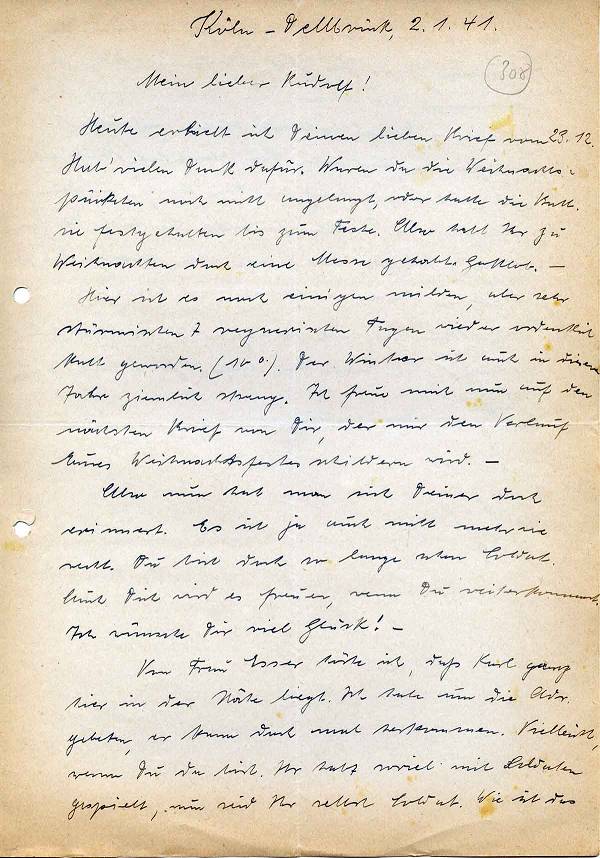 Köln-Dellbrück, 2.1.41.
308
Mein lieber Rudolf!
Heute erhielt ich Deinen lieben Brief vom 23.12.
Hab' vielen Dank dafür. Waren da die Weihnachts-
päckchen noch nicht angelangt, oder hatte die Batt.
sie festgehalten bis zum Feste. Also habt Ihr zu
Weihnachten doch eine Messe gehabt. Gottlob. —
Hier ist es nach einigen milden, aber sehr
stürmischen & regnerischen Tagen wieder ordentlich
kalt geworden. (10°). Der Winter ist auch in diesem
Jahre ziemlich streng. Ich freue mich nun auf den
nächsten Brief von Dir, der mir den Verlauf
Eures Weihnachtsfestes schildern wird. —
Also nun hat man sich Deiner doch
erinnert. Es ist ja auch nicht mehr wie
recht. Du bist doch so lange schon Soldat.
Auch Dich wird es freuen, wenn Du weiterkommst.
Ich wünsche Dir viel Glück! —
Von Frau Esser hörte ich, daß Karl ganz
hier in der Nähe liegt. Ich habe um die Adr.
gebeten, er kann doch mal herkommen. Vielleicht,
wenn Du da bist. Ihr habt soviel mit Soldaten
gespielt, nun seid Ihr selbst Soldat. Wie ist das